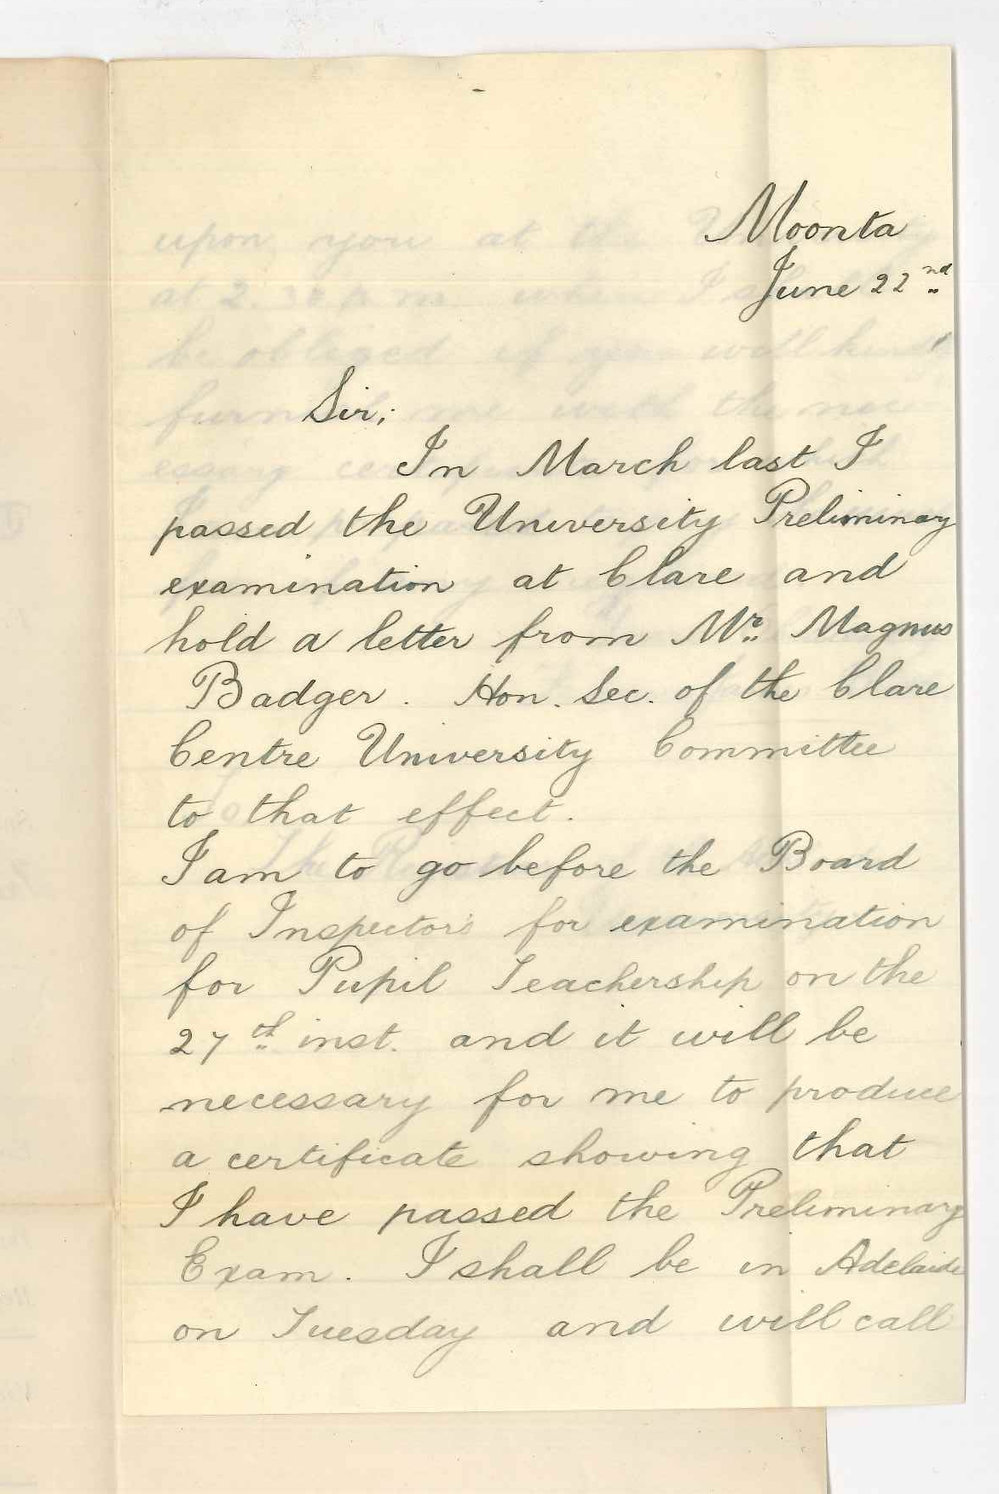 Moonta
June 22nd
Sir;
In March last I
passed the University Preliminary
examination at Clare and
hold a letter from Mr. Magnus
Badger. Hon. Sec. of the Clare
Centre University Committee
to that effect.
I am to go before the Board
of Inspectors for examination
for Pupil Teachership on the
27th inst. and it will be
necessary for me to produce
a certificate showing that
I have passed the Preliminary
Exam. I shall be in Adelaide
on Tuesday and will call
upon you at the
at 2.30 p.m. when I
be obliged if you will kindly
furnish me with the